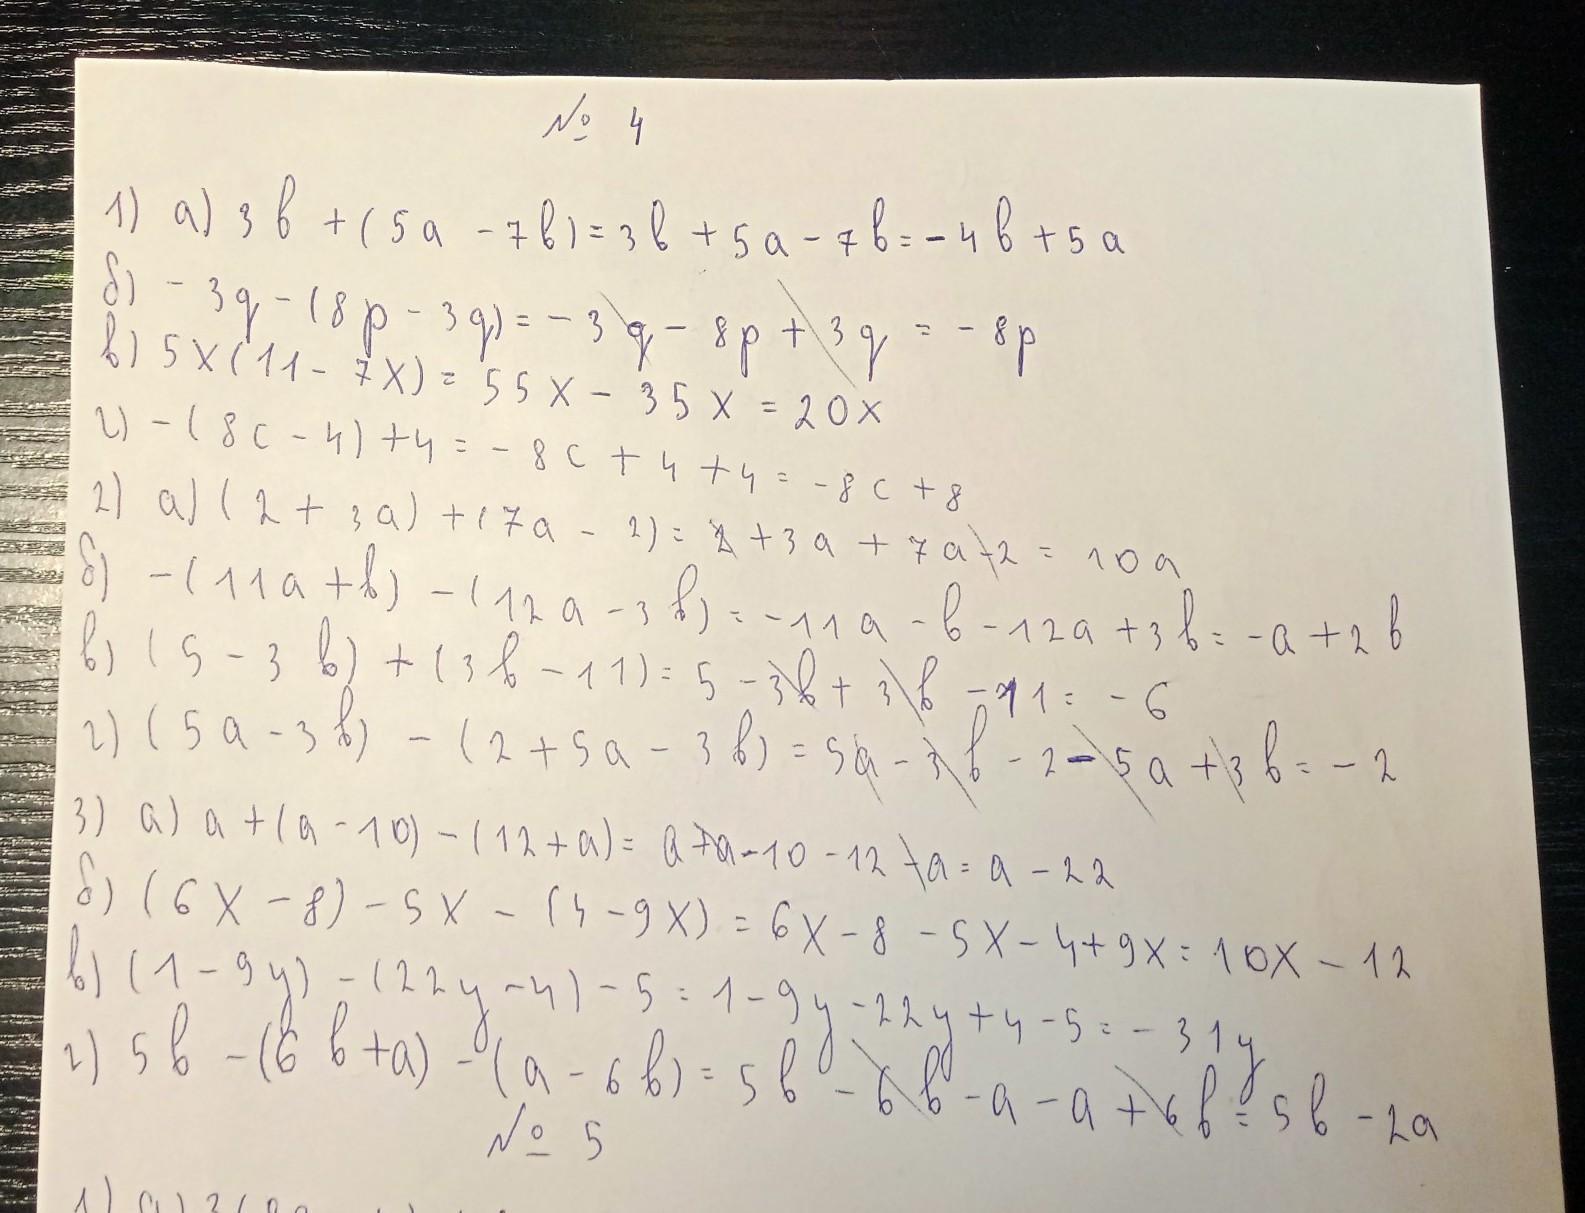 № 4
1) а) 3b + (5a - 7b) = 3b + 5a - 7b = -4b + 5a
б) - 3q - (8p - 3q) = - 3q - 8p + 3q = - 8p
в) 5x(11 - 7x) = 55x - 35x = 20x
г) - (8c - 4) + 4 = - 8c + 4 + 4 = -8c + 8
2) а) (2 + 3a) + (7a - 2) = 2 + 3a + 7a - 2 = 10a
б) - (11a + b) - (12a - 3b) = -11a - b - 12a + 3b = -a + 2b
в) (5 - 3b) + (3b - 11) = 5 - 3b + 3b - 11 = - 6
г) (5a - 3b) - (2 + 5a - 3b) = 5a - 3b - 2 - 5a + 3b = - 2
3) а) a + (a - 10) - (12 + a) = a + a - 10 - 12 - a = a - 22
б) (6x - 8) - 5x - (4 - 9x) = 6x - 8 - 5x - 4 + 9x = 10x - 12
в) (1 - 9y) - (22y - 4) - 5 = 1 - 9y - 22y + 4 - 5 = - 31y
г) 5b - (6b + a) - (a - 6b) = 5b - 6b - a - a + 6b = 5b - 2a
№ 5